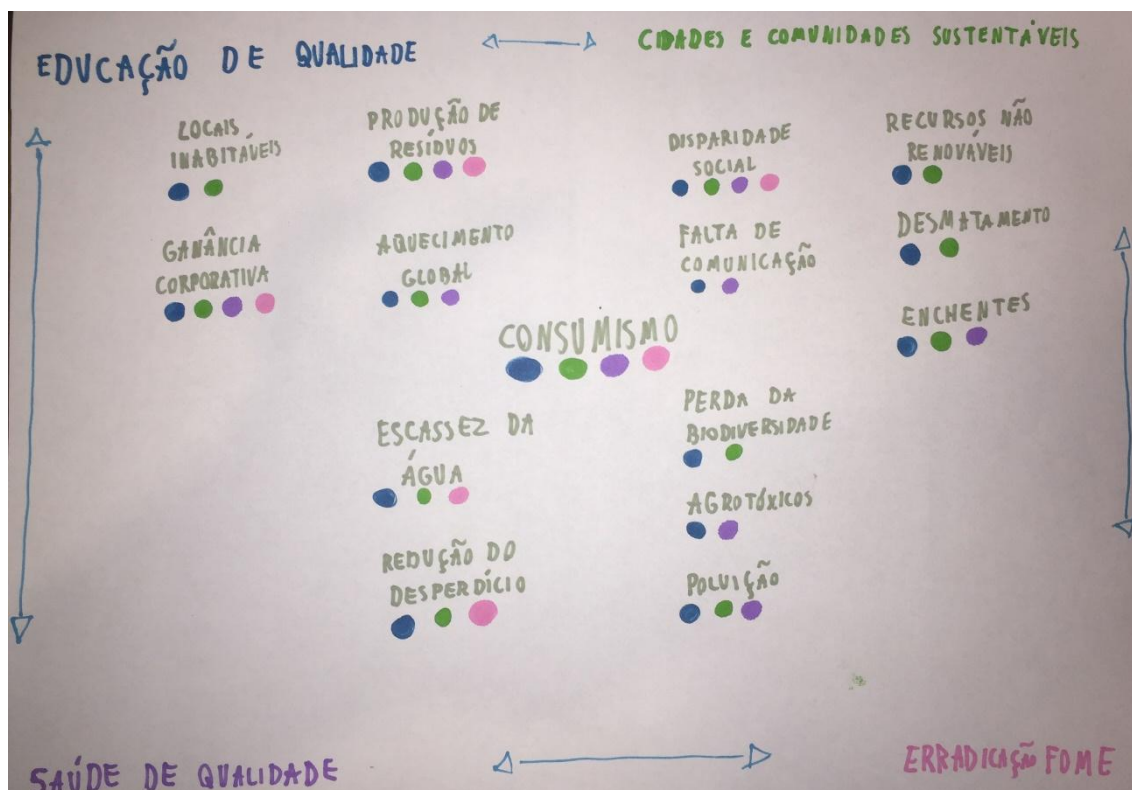 EDUCAÇÃO DE QUALIDADE
CIDADES E COMUNIDADES SUSTENTÁVEIS
LOCAIS
INABITÁVEIS
PRODUÇÃO DE
RESÍDUOS
DISPARIDADE
SOCIAL
RECURSOS NÃO
RENOVÁVEIS
GANÂNCIA
CORPORATIVA
AQUECIMENTO
GLOBAL
FALTA DE
COMUNICAÇÃO
DESMATAMENTO
ENCHENTES
CONSUMISMO
ESCASSEZ DA
ÁGUA
PERDA DA
BIODIVERSIDADE
AGROTÓXICOS
REDUÇÃO DO
DESPERDÍCIO
POLUIÇÃO
SAÚDE DE QUALIDADE
ERRADICAÇÃO FOME